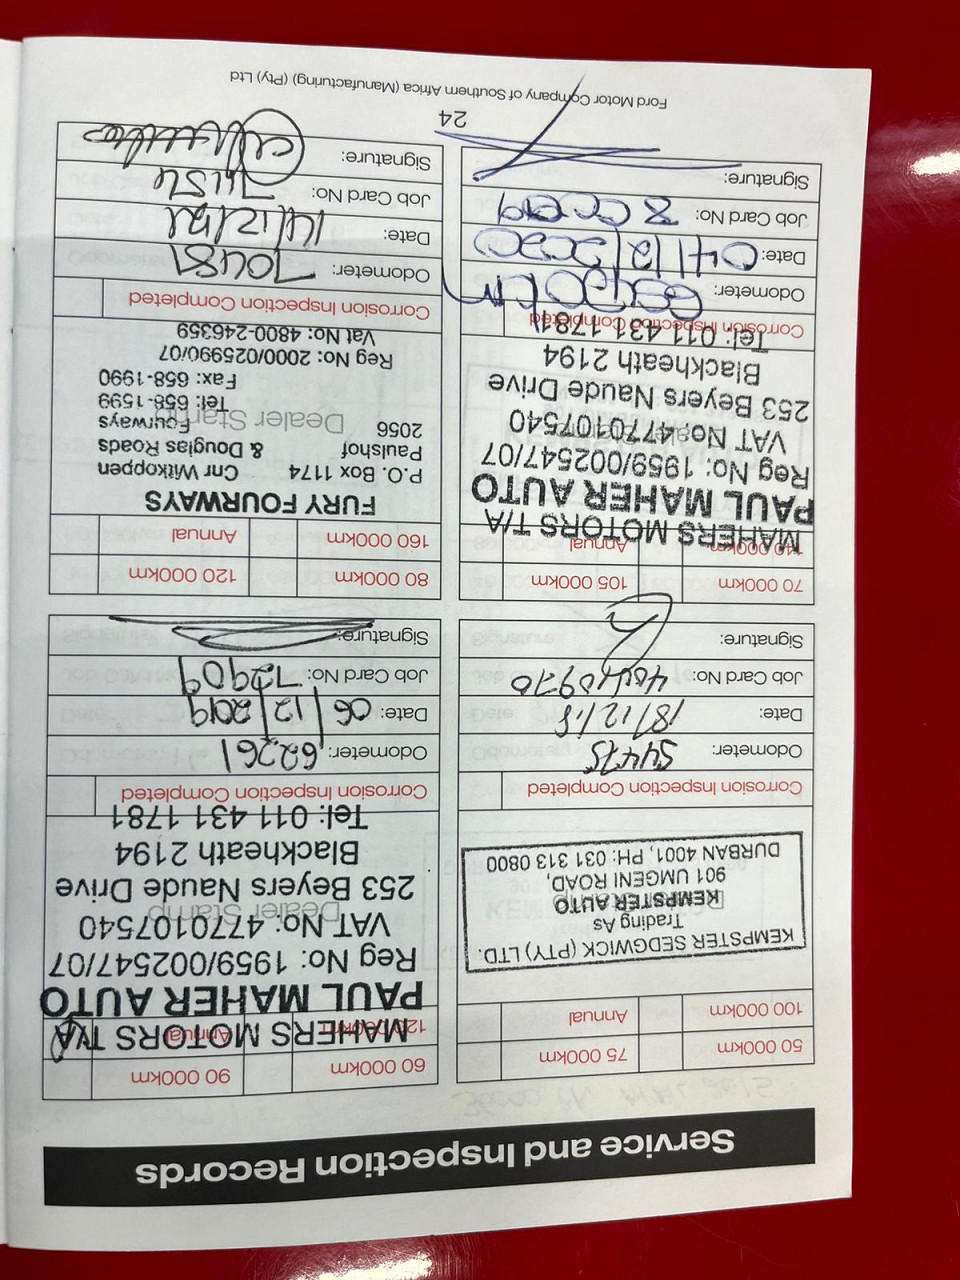 Service and Inspection Records
50 000km
75 000km
100 000km
Annual
KEMPSTER SEDGWICK (PTY) LTD.
Trading As
KEMPSTER AUTO
901 UMGENI ROAD,
DURBAN 4001, PH: 031 313 0800
Corrosion Inspection Completed
Odometer: 54475
Date: 18/12/18
Job Card No:
Signature:
60 000km
90 000km
120 000km
Annual
MAHERS MOTORS T/A
PAUL MAHER AUTO
Reg No: 1959/002547/07
VAT No: 4770107540
Dealer Stamp
253 Beyers Naude Drive
Blackheath 2194
Tel: 011 431 1781
Corrosion Inspection Completed
Odometer: 62261
Date: 06/12/2019
Job Card No: 72909
Signature:
70 000km
105 000km
140 000km
Annual
MAHERS MOTORS T/A
PAUL MAHER AUTO
Reg No: 1959/002547/07
VAT No: 4770107540
253 Beyers Naude Drive
Blackheath 2194
Tel: 011 431 1781
Corrosion Inspection Completed
Odometer:
Date: 04/12/2020
Job Card No:
Signature:
80 000km
120 000km
160 000km
Annual
FURY FOURWAYS
P.O. Box 1174 Cnr Witkoppen
Paulshof & Douglas Roads
2056 Fourways
Dealer Stamp
Tel: 658-1599
Fax: 658-1990
Reg No: 2000/025990/07
Vat No: 4800-246359
Corrosion Inspection Completed
Odometer: 70487
Date: 14/12/21
Job Card No:
Signature:
24
Ford Motor Company of Southern Africa (Manufacturing) (Pty) Ltd